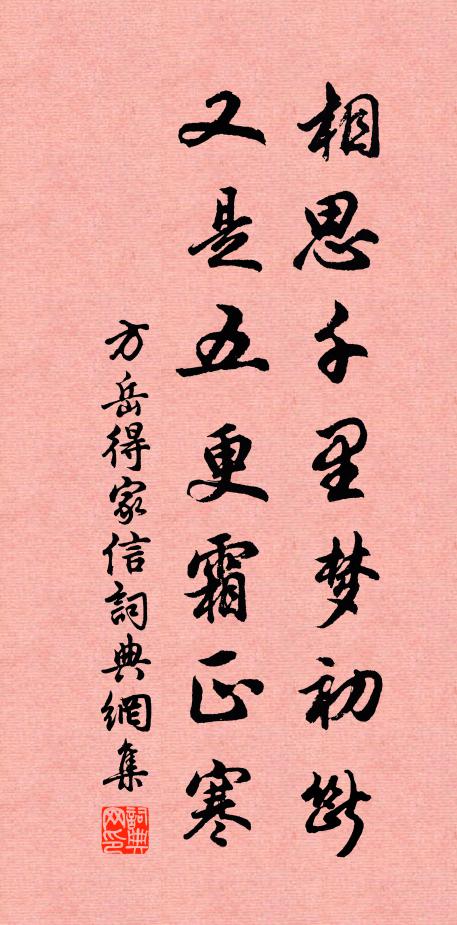 相思千里梦初断
又是五更霜正寒
方岳得家信詞典網集
詞典网印